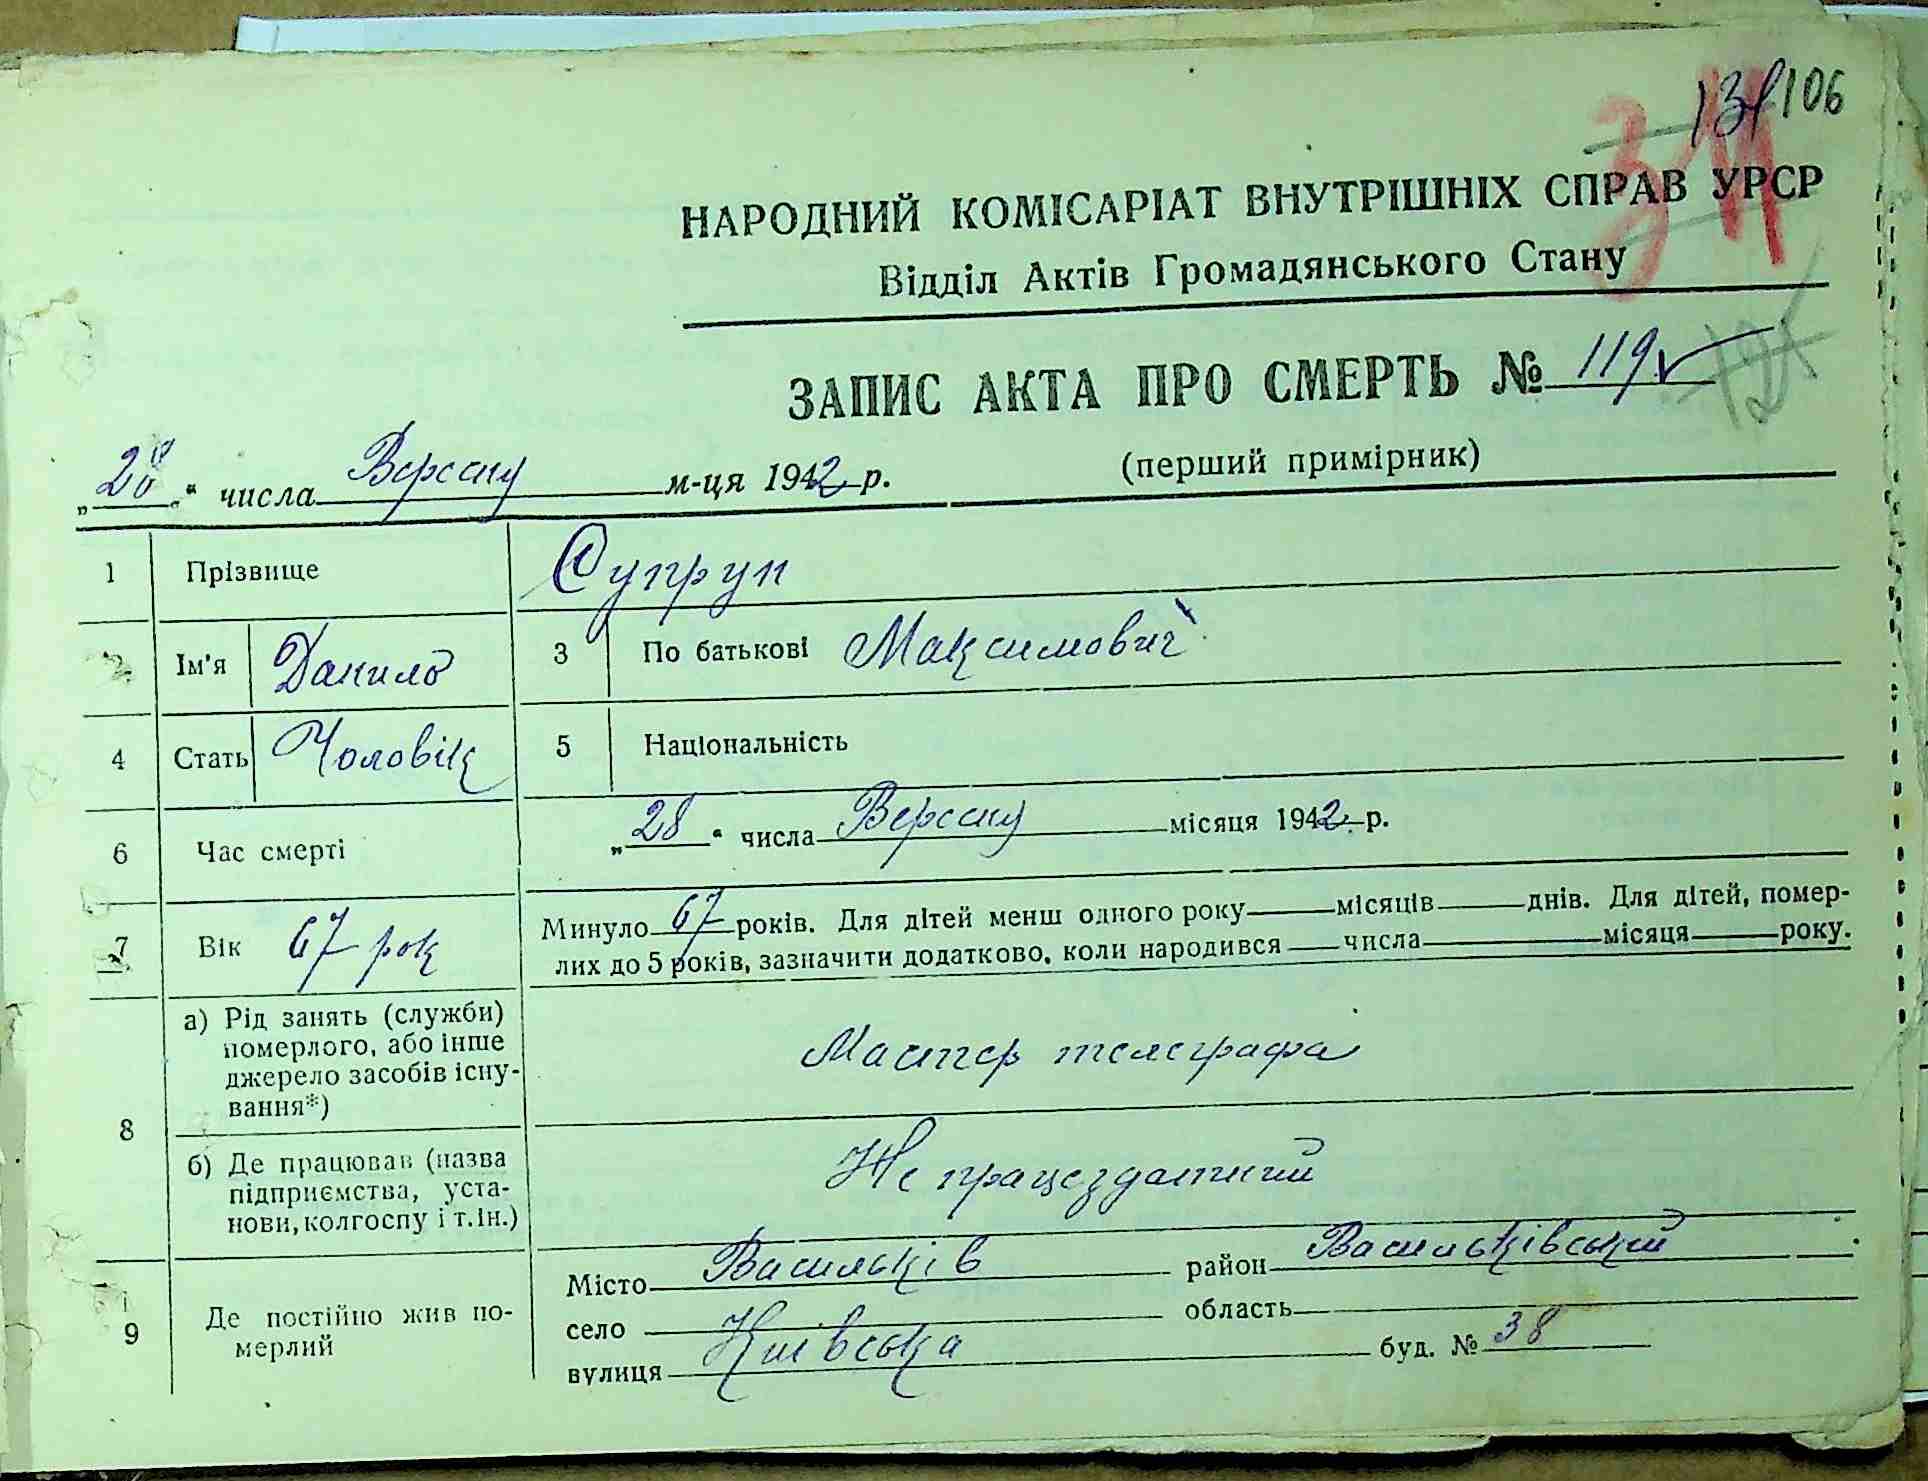 131 106
ЗМ
НАРОДНИЙ КОМІСАРІАТ ВНУТРІШНІХ СПРАВ УРСР
Відділ Актів Громадянського Стану
ЗАПИС АКТА ПРО СМЕРТЬ № 119
(перший примірник)
„28“ числа Вересня м-ця 1942 р.
1 Прізвище Супрун
2 Ім'я Данило 3 По батькові Максимович
4 Стать Чоловік 5 Національність
6 Час смерті „28“ числа Вересня місяця 1942 р.
7 Вік 67 рок Минуло 67 років. Для дітей менш одного року місяців днів. Для дітей, помер-
лих до 5 років, зазначити додатково, коли народився числа місяця року.
8 а) Рід занять (служби)
померлого, або інше
джерело засобів існу-
вання*)
Мастер телеграфа
б) Де працював (назва
підприємства, уста-
нови, колгоспу і т.ін.)
Не працездатний
9 Де постійно жив по-
мерлий
Місто Васильків район Васильківський
село область
вулиця Київська буд. № 38